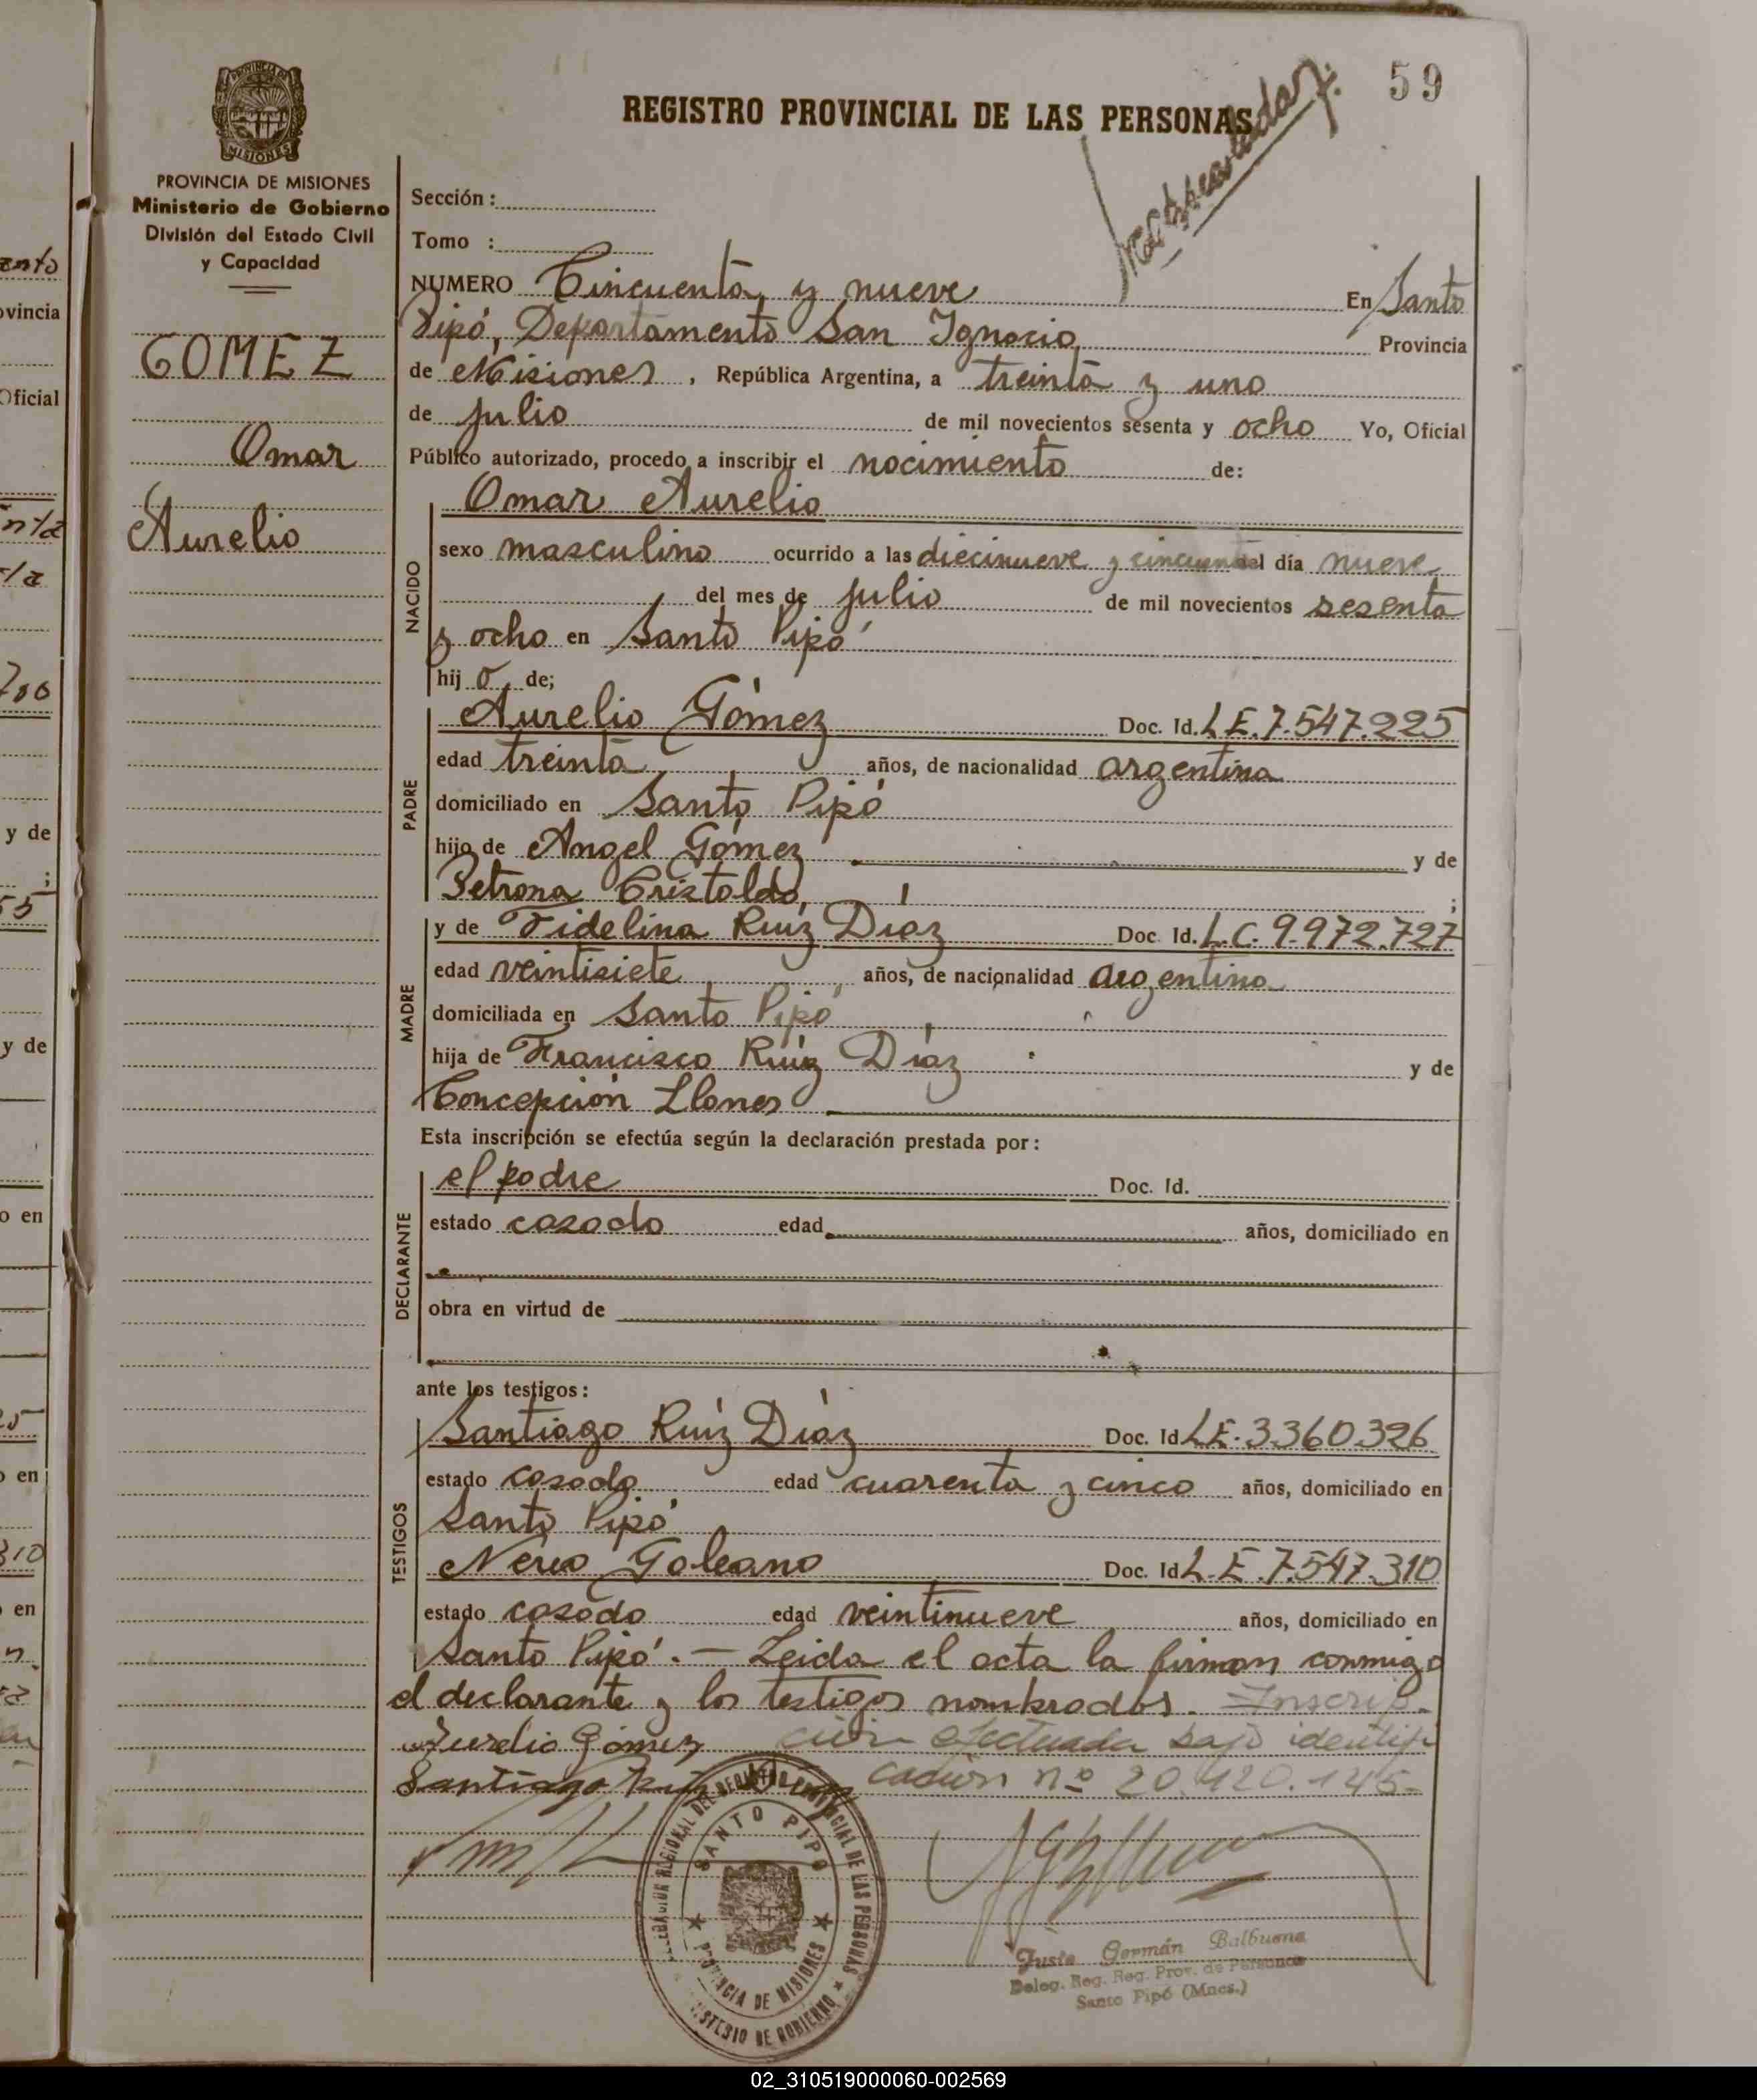 59
REGISTRO PROVINCIAL DE LAS PERSONAS
PROVINCIA DE MISIONES
Ministerio de Gobierno
División del Estado Civil
y Capacidad
GOMEZ
Omar
Aurelio
Sección :
Tomo :
NUMERO Cincuenta y nueve En Santo
Pipó, Departamento San Ignacio Provincia
de Misiones , República Argentina, a treinta y uno
de julio de mil novecientos sesenta y ocho Yo, Oficial
Público autorizado, procedo a inscribir el nacimiento de:
Omar Aurelio
NACIDO
sexo masculino ocurrido a las diecinueve y cincuenta del día nueve
del mes de julio de mil novecientos sesenta
y ocho en Santo Pipó
hij o de;
PADRE
Aurelio Gómez Doc. Id. L.E. 7.547.225
edad treinta años, de nacionalidad argentina
domiciliado en Santo Pipó
hijo de Angel Gómez y de
Petrona Cristaldo, ;
MADRE
y de Fidelina Ruíz Díaz Doc. Id. L.C. 9.972.727
edad veintisiete años, de nacionalidad argentina
domiciliada en Santo Pipó
hija de Francisco Ruíz Díaz y de
Concepción Llanes
Esta inscripción se efectúa según la declaración prestada por :
DECLARANTE
el padre Doc. Id.
estado casado edad años, domiciliado en
obra en virtud de
ante los testigos :
TESTIGOS
Santiago Ruíz Díaz Doc. Id L.E. 3360326
estado casado edad cuarenta y cinco años, domiciliado en
Santo Pipó
Nereo Galeano Doc. Id L.E. 7.547.310
estado casado edad veintinueve años, domiciliado en
Santo Pipó. — Leida el acta la firman conmigo
el declarante y los testigos nombrados. Inscrip-
ción efectuada bajo identifi
cación nº 20.420.145-
Aurelio Gómez
Santiago Ruiz
DELEGACION REGIONAL DEL REGISTRO PROVINCIAL DE LAS PERSONAS
SANTO PIPO
PROVINCIA DE MISIONES
MINISTERIO DE GOBIERNO
Justo Germán Balbuena
Deleg. Reg. Reg. Prov. de Personas
Santo Pipó (Mnes.)
vincia
Oficial
y de
;
55
y de
o en
en
310
en
02_310519000060-002569